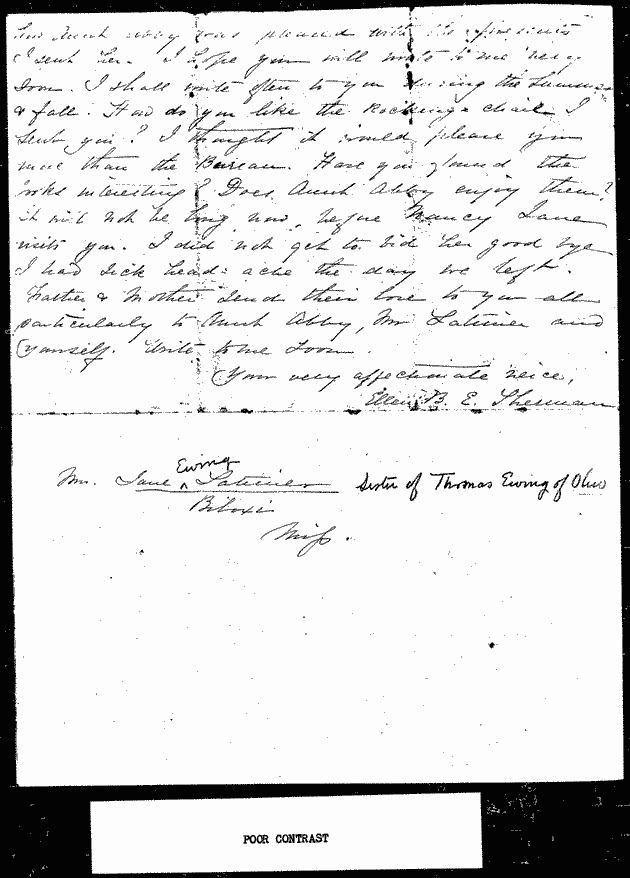 Aunt Abby was pleased with the presents
I sent her. I hope you will write to me very
soon. I shall write often to you during the Summer
& fall. How do you like the Rocking-chair I
sent you? I thought it would please you
more than the Bureau. Have you found the
books interesting? Does Aunt Abby enjoy them?
it will not be long now, before Nancy Jane
visits you. I did not get to bid her good bye
I had sick head-ache the day we left.
Father & Mother send their love to you all
particularly to Aunt Abby, Mr Latimer and
yourself. Write to me soon.
Your very affectionate neice,
Ellen B. E. Sherman
Ewing
Mrs. Jane ^ Latimer Sister of Thomas Ewing of Ohio
Biloxi
Miss.
POOR CONTRAST